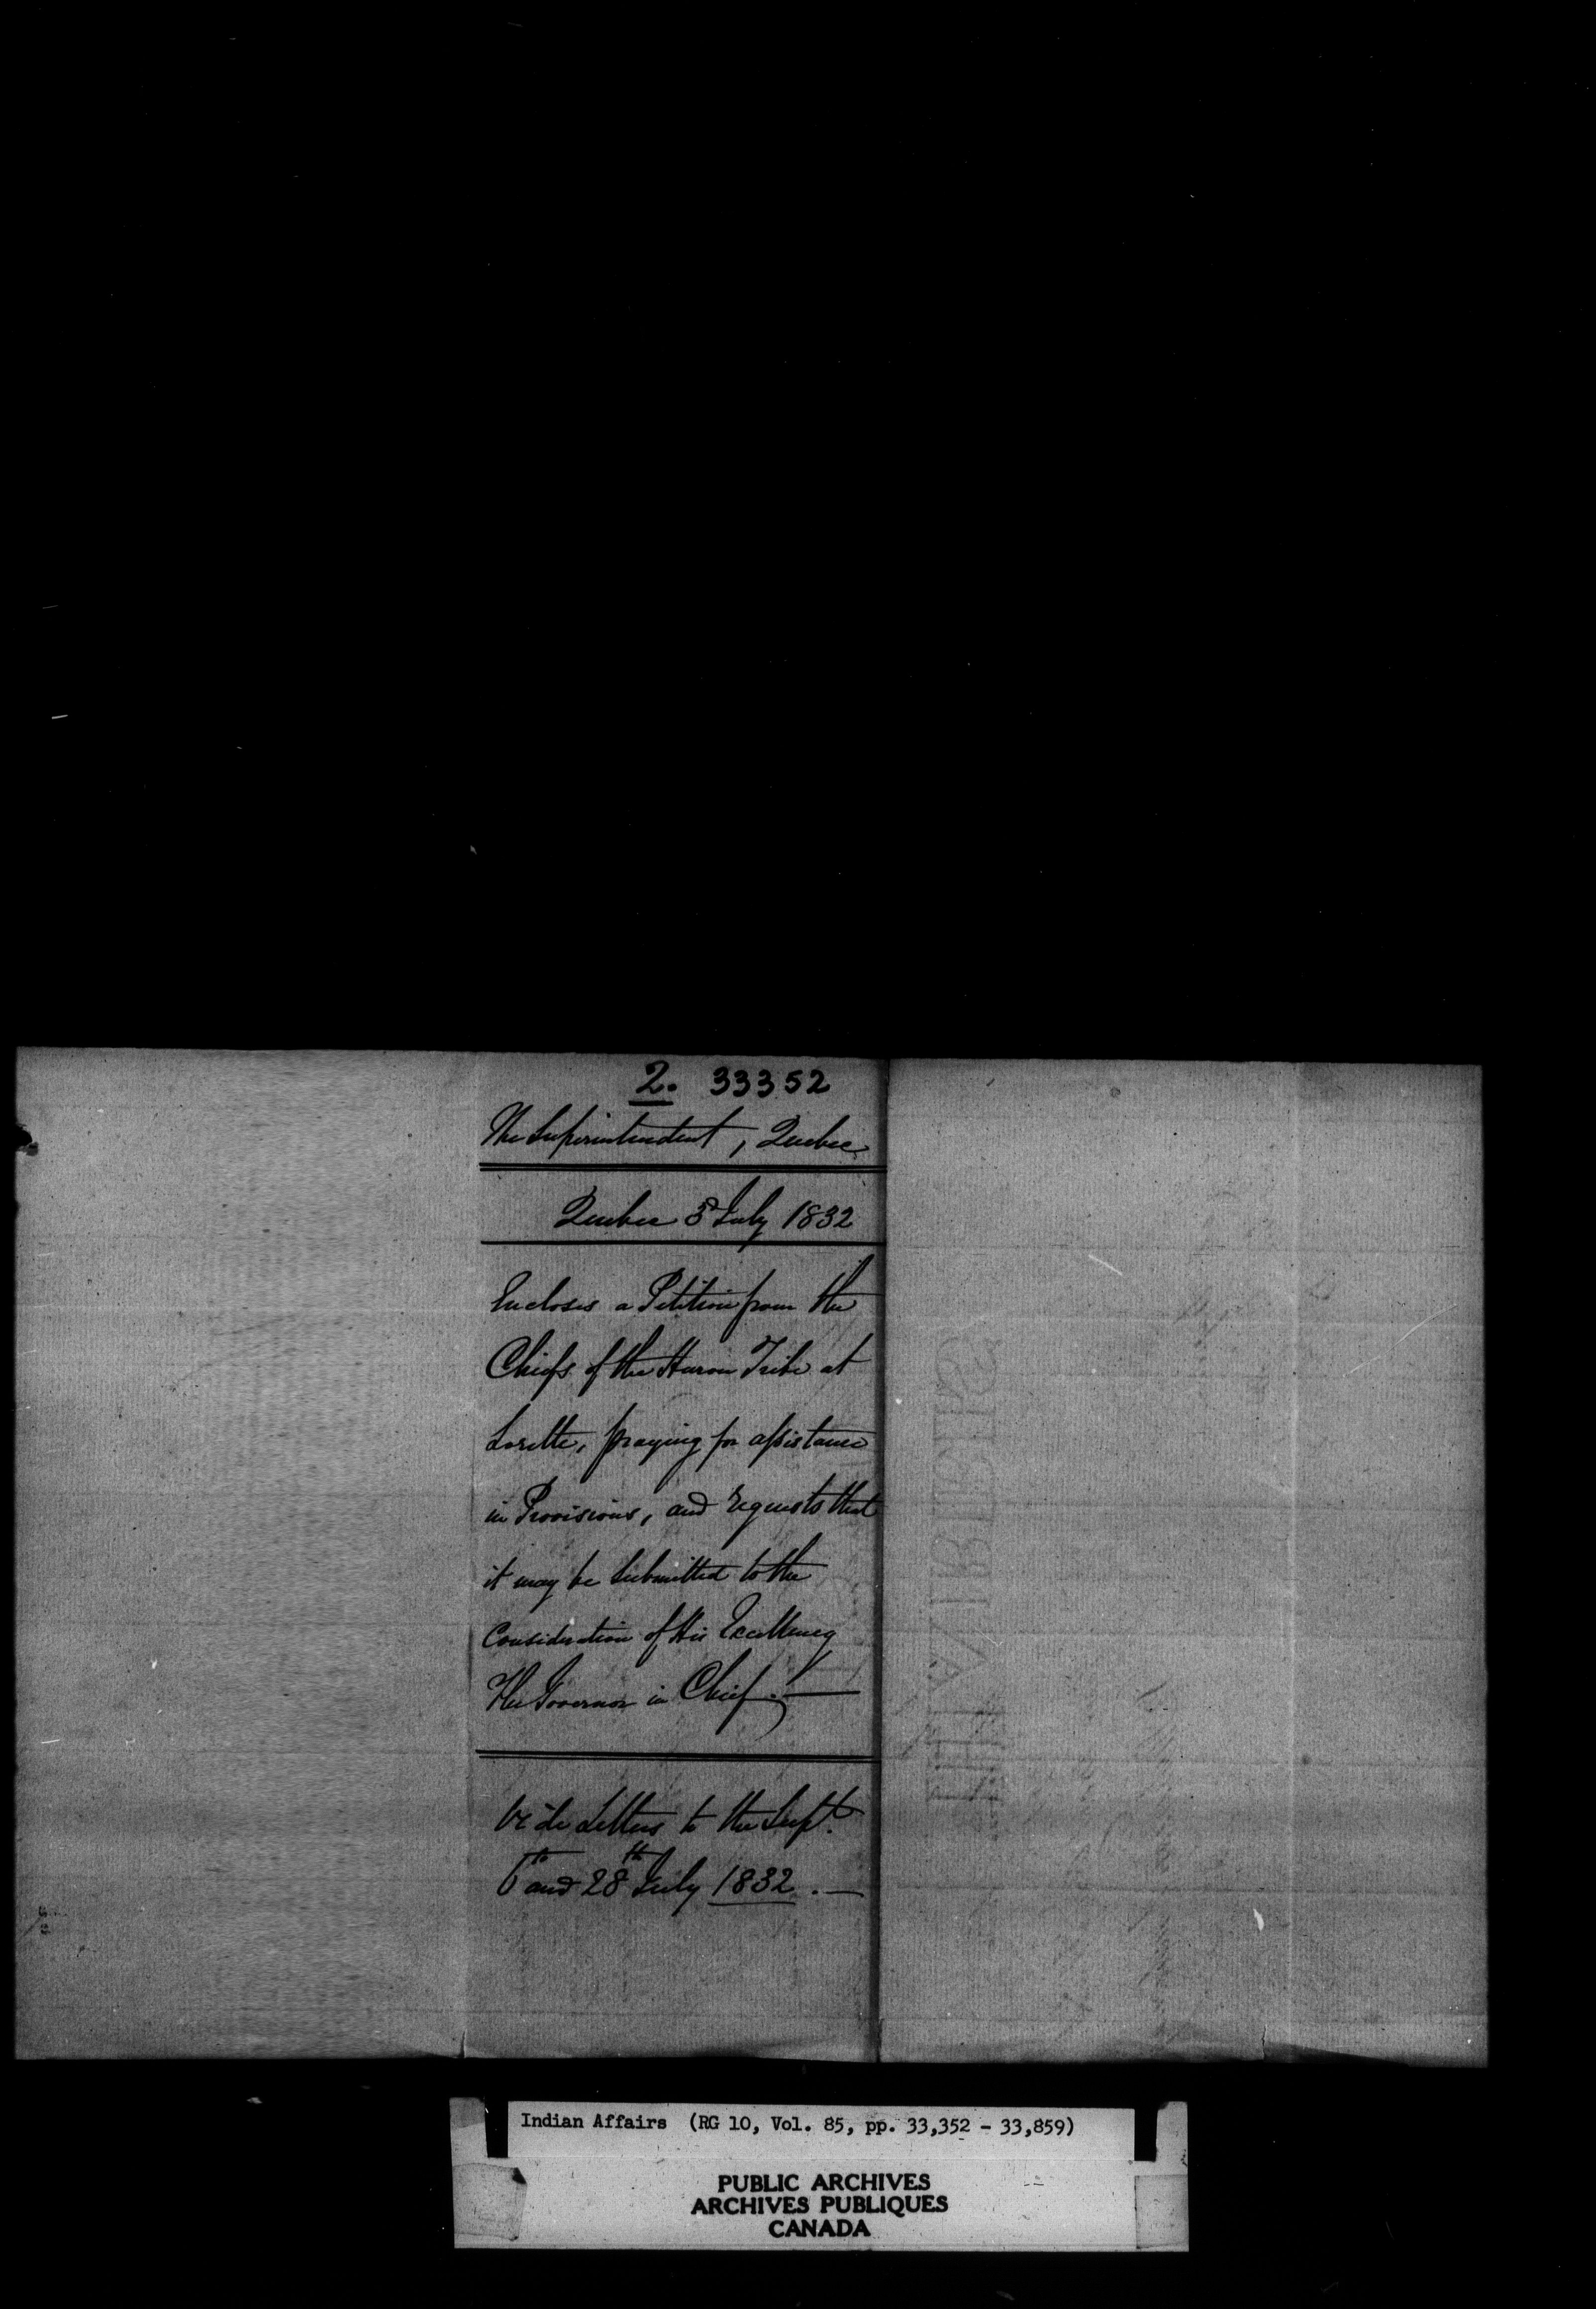 2. 33352
The Superintendent, Quebec
Quebec 3d July 1832
Encloses a Petition from the
Chiefs of the Huron Tribe at
Lorette, praying for assistance
in Provisions, and requests that
it may be submitted to the
Consideration of His Excellency
The Governor in Chief.—
Vide Letters to the Supt.
6th and 28th July 1832.—
Indian Affairs (RG 10, Vol. 85, pp. 33,352 - 33,859)
PUBLIC ARCHIVES
ARCHIVES PUBLIQUES
CANADA